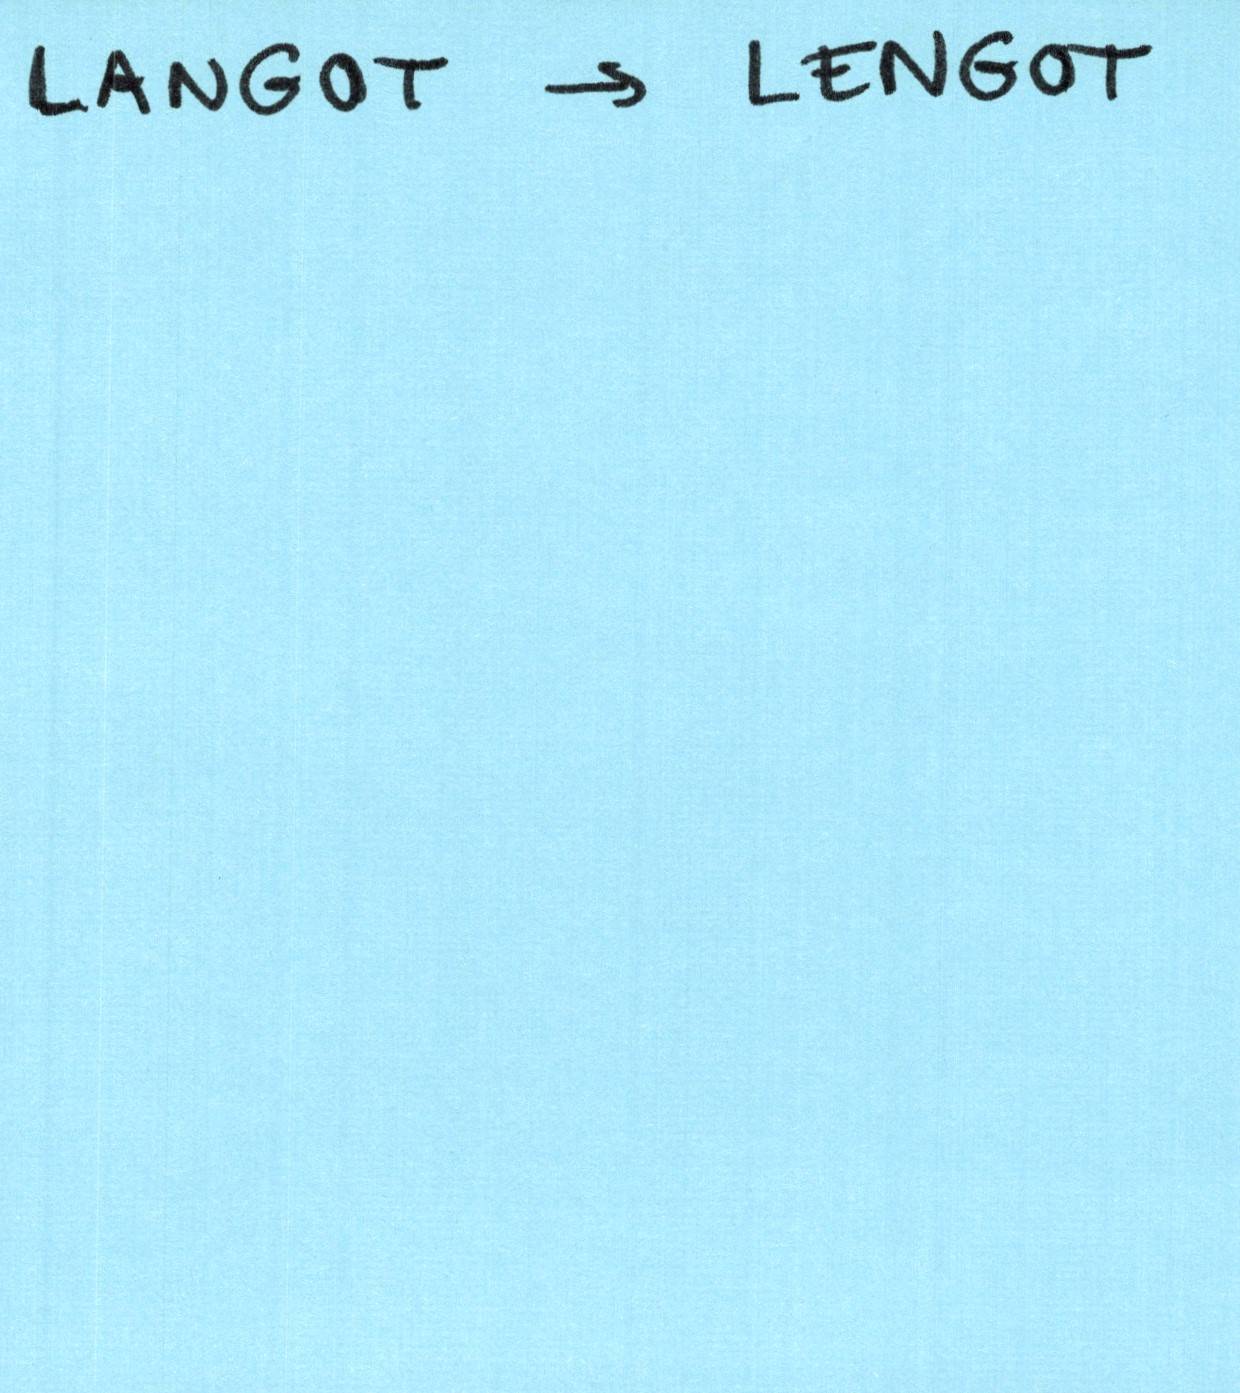 LANGOT → LENGOT